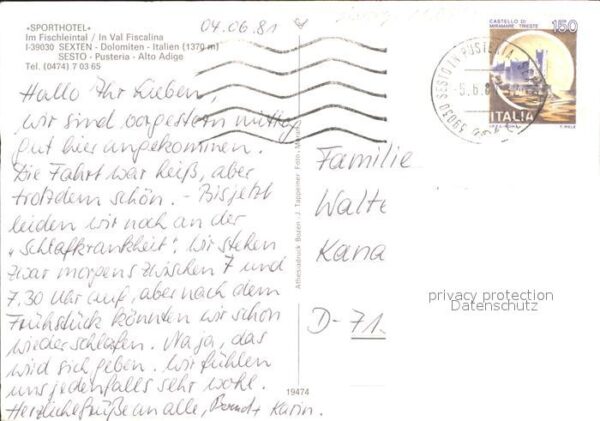 «SPORTHOTEL»
Im Fischleintal / In Val Fiscalina
I-39030 SEXTEN - Dolomiten - Italien (1370 m)
SESTO - Pusteria - Alto Adige
Tel. (0474) 7 03 65
04.06.81
Hallo Ihr Lieben,
wir sind vorgestern mittag
gut hier angekommen.
Die Fahrt war heiß, aber
trotzdem schön. - Bis jetzt
leiden wir noch an der
"Schlafkrankheit". Wir stehen
zwar morgens zwischen 7 und
7.30 Uhr auf, aber nach dem
Frühstück könnten wir schon
wieder schlafen. Na ja, das
wird sich geben. Wir fühlen
uns jedenfalls sehr wohl.
Herzliche Grüße an alle, Bernd + Karin.
Athesiadruck Bozen - J. Tappeiner Foto
19474
CASTELLO DI
MIRAMARE TRIESTE
150
ITALIA
39030 SESTO IN PUSTERIA
Familie
Walte
Kana
D-71
privacy protection
Datenschutz